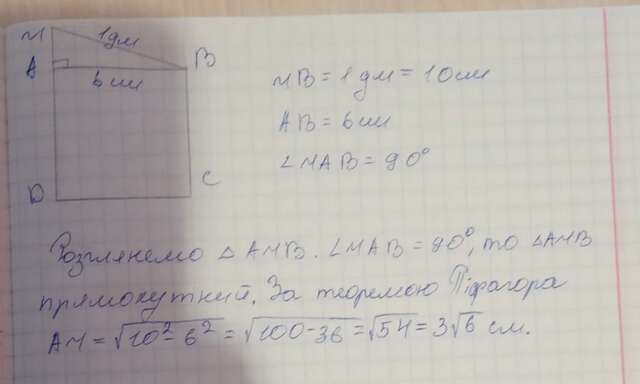 M
1дм
A
B
6 см
D
C
MB = 1 дм = 10см
AB = 6см
∠MAB = 90°
Розглянемо △AMB. ∠MAB = 90°, то △AMB
прямокутний. За теоремою Піфагора
AM = √10² - 6² = √100 - 36 = √54 = 3√6 см.